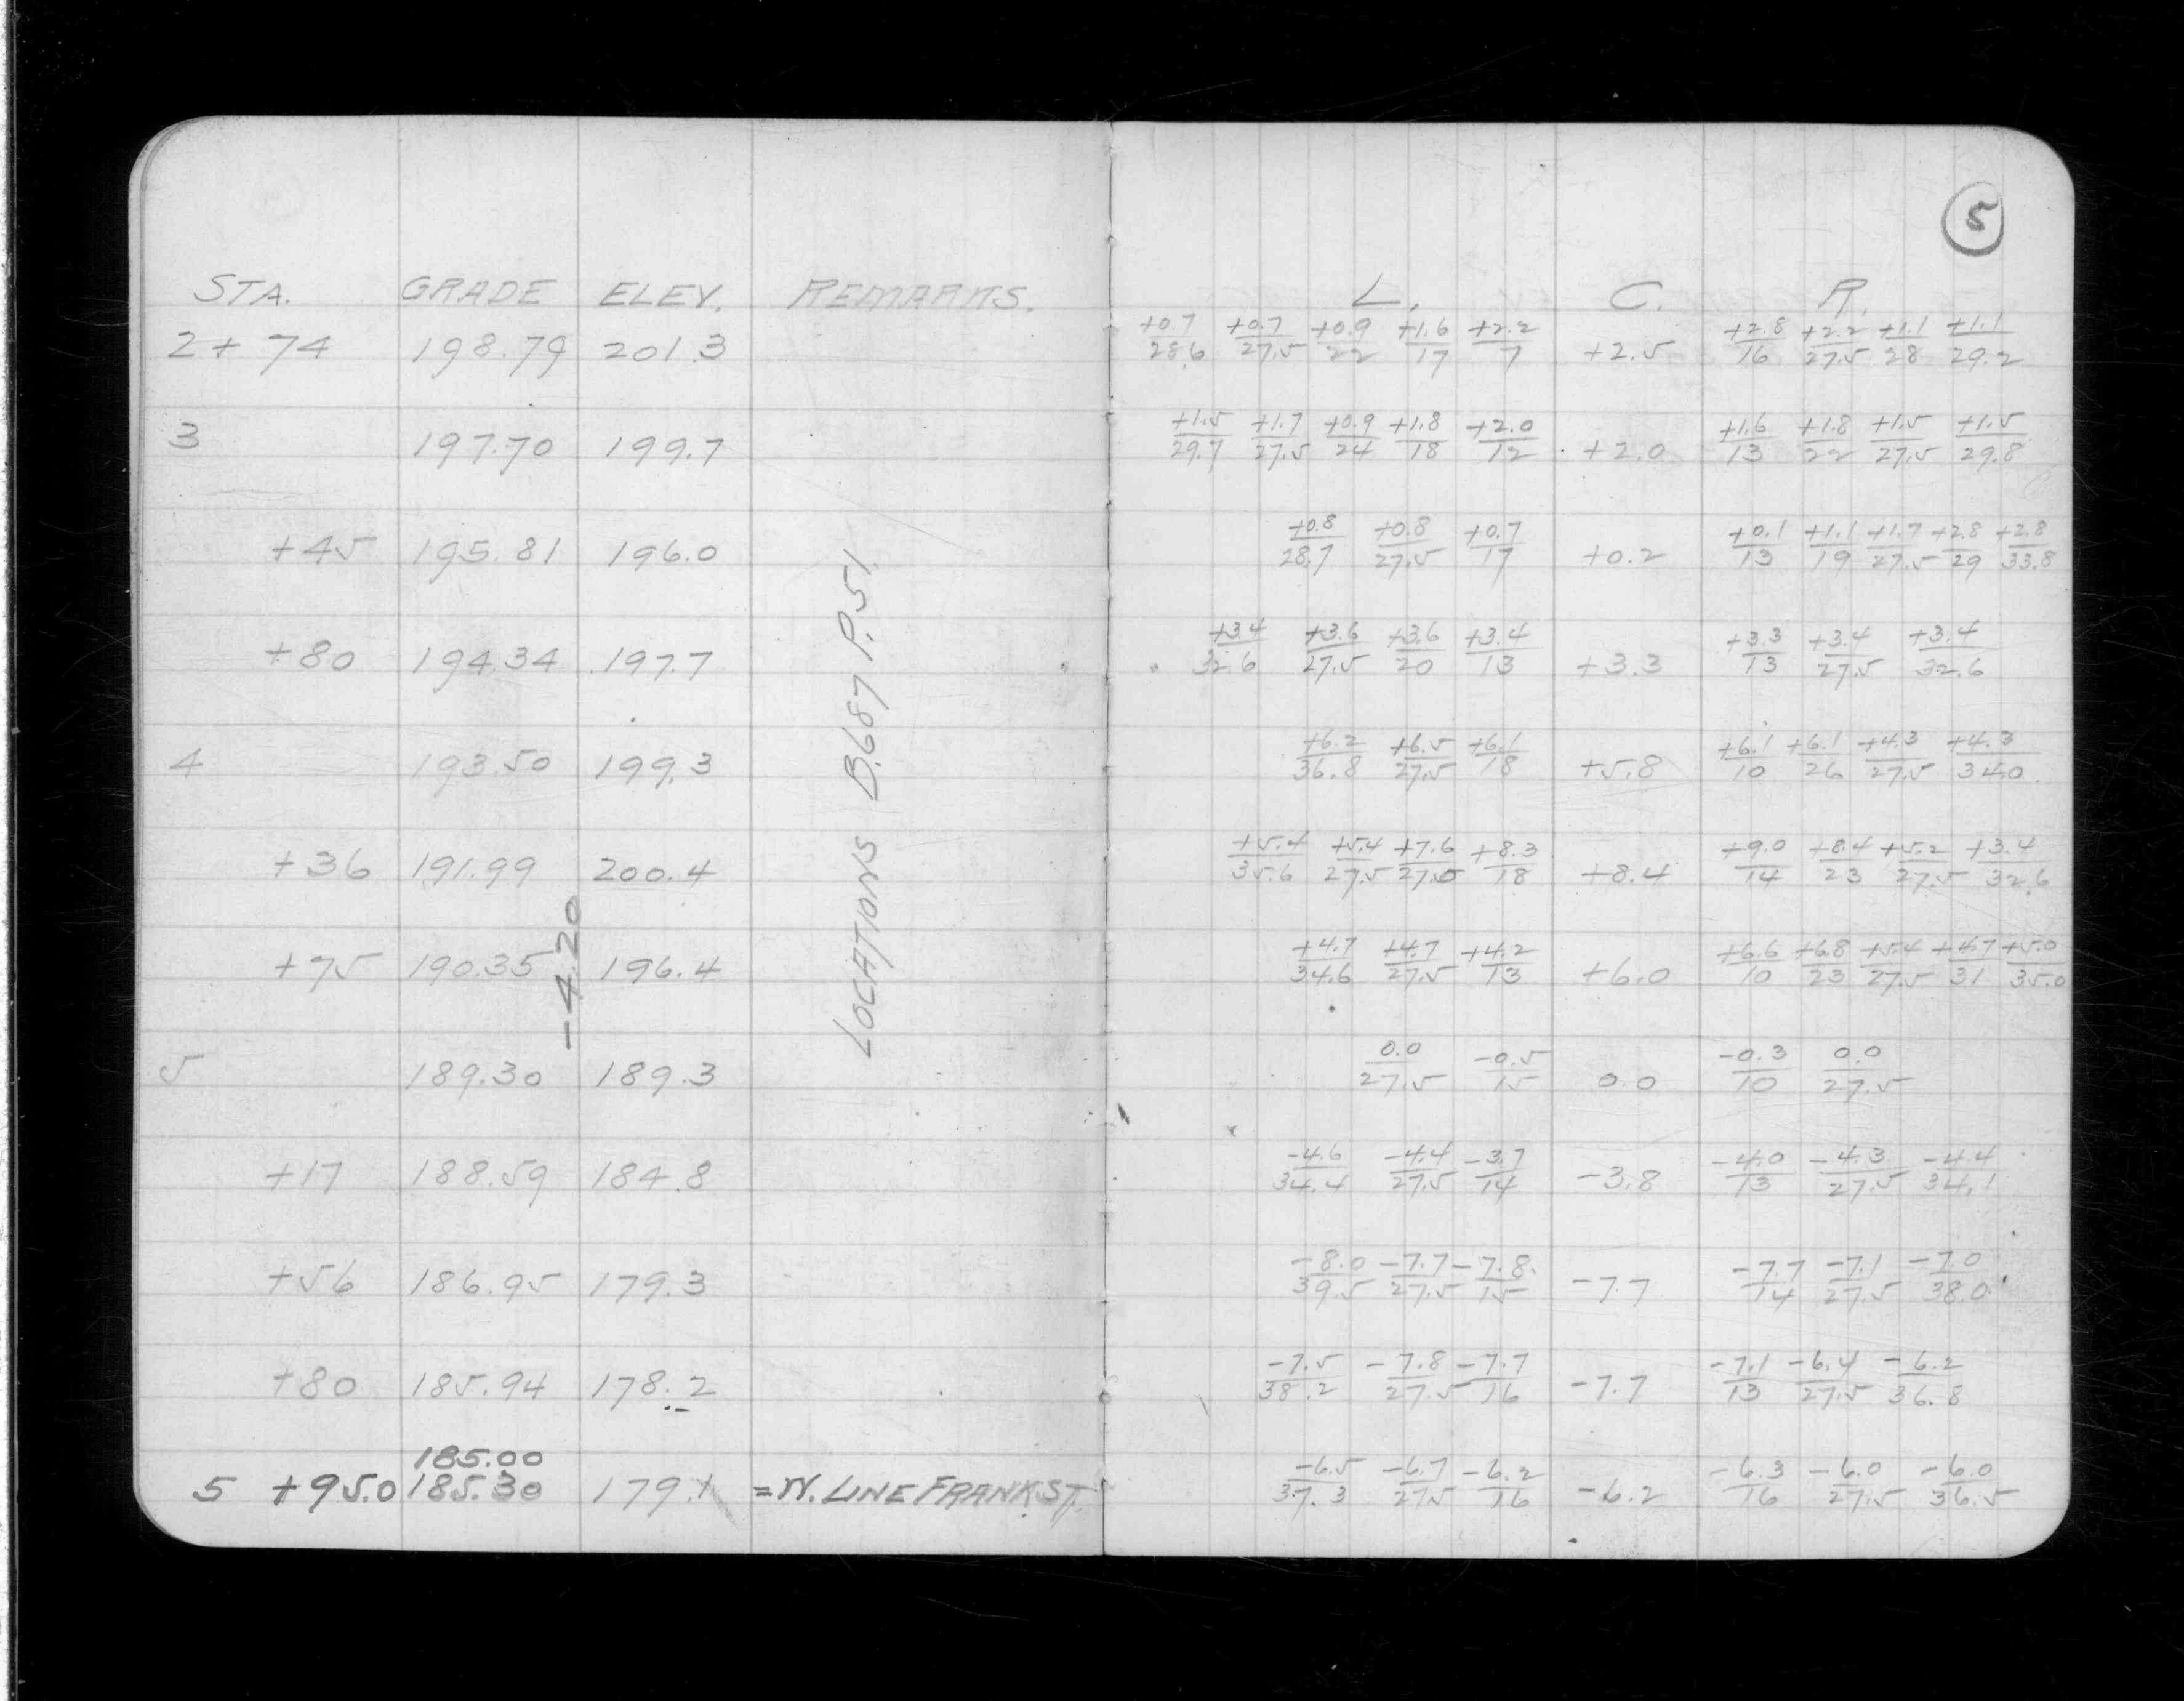 5
STA. GRADE ELEV. REMARKS. L. C. R.
2+74 198.79 201.3 +0.7/28.6 +0.7/27.5 +0.9/22 +1.6/17 +2.2/7 +2.5 +2.8/16 +2.2/27.5 +1.1/28 +1.1/29.2
3 197.70 199.7 +1.5/29.7 +1.7/27.5 +0.9/24 +1.8/18 +2.0/12 +2.0 +1.6/13 +1.8/22 +1.5/27.5 +1.5/29.8
+45 195.81 196.0 +0.8/28.7 +0.8/27.5 +0.7/17 +0.2 +0.1/13 +1.1/19 +1.7/27.5 +2.8/29 +2.8/33.8
+80 194.34 197.7 +3.4/32.6 +3.6/27.5 +3.6/20 +3.4/13 +3.3 +3.3/13 +3.4/27.5 +3.4/32.6
4 193.50 199.3 +6.2/36.8 +6.5/27.5 +6.1/18 +5.8 +6.1/10 +6.1/26 +4.3/27.5 +4.3/34.0
+36 191.99 200.4 +5.4/35.6 +5.4/27.5 +7.6/27.0 +8.3/18 +8.4 +9.0/14 +8.4/23 +5.2/27.5 +3.4/32.6
+75 190.35 196.4 +4.7/34.6 +4.7/27.5 +4.2/13 +6.0 +6.6/10 +6.8/23 +5.4/27.5 +4.7/31 +5.0/35.0
5 189.30 189.3 0.0/27.5 -0.5/15 0.0 -0.3/10 0.0/27.5
+17 188.59 184.8 -4.6/34.4 -4.4/27.5 -3.7/14 -3.8 -4.0/13 -4.3/27.5 -4.4/34.1
+56 186.95 179.3 -8.0/39.5 -7.7/27.5 -7.8/15 -7.7 -7.7/14 -7.1/27.5 -7.0/38.0
+80 185.94 178.2 -7.5/38.2 -7.8/27.5 -7.7/16 -7.7 -7.1/13 -6.4/27.5 -6.2/36.8
185.00
5 +95.0 185.30 179.1 =W. LINE FRANK ST. -6.5/37.3 -6.7/27.5 -6.2/16 -6.2 -6.3/16 -6.0/27.5 -6.0/36.5
-4.20
LOCATIONS B.687 P.51